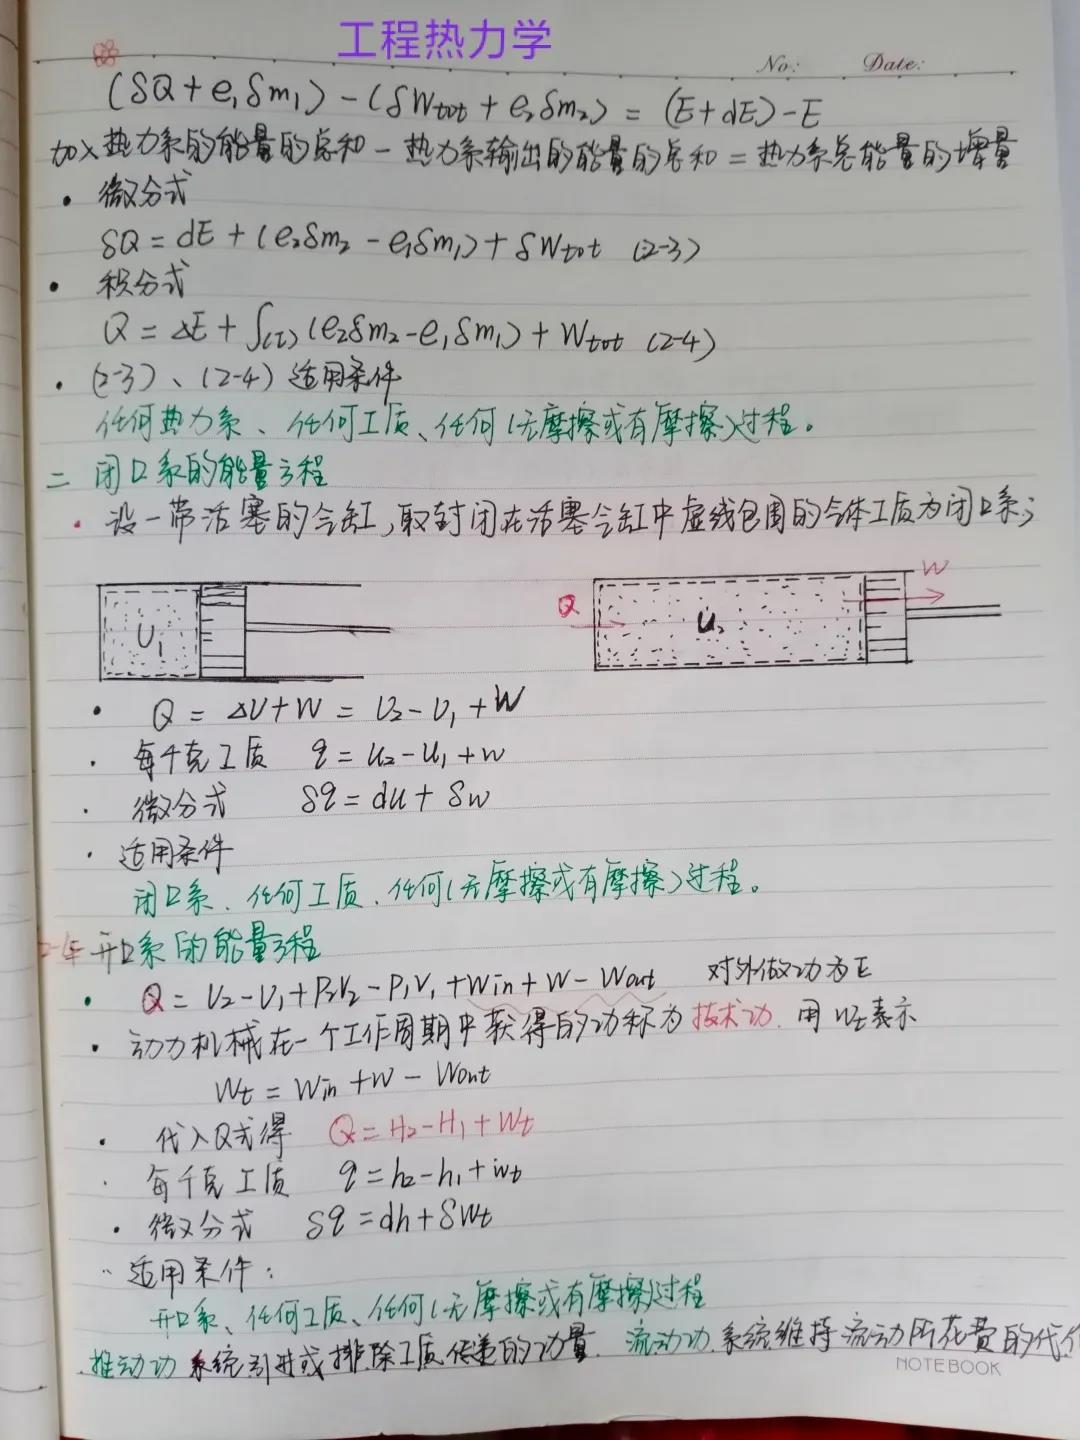 工程热力学
No: Date:
(δQ+e₁δm₁)-(δWtot+e₂δm₂)=(E+dE)-E
加入热力系的能量的总和-热力系输出的能量的总和=热力系总能量的增量
· 微分式
δQ=dE+(e₂δm₂-e₁δm₁)+δWtot (2-3)
· 积分式
Q=ΔE+∫(τ)(e₂δm₂-e₁δm₁)+Wtot (2-4)
· (2-3)、(2-4)适用条件
任何热力系、任何工质、任何(无摩擦或有摩擦)过程。
二 闭口系的能量方程
· 设一带活塞的气缸,取封闭在活塞气缸中虚线包围的气体工质为闭口系;
U₁ Q U₂ W
· Q=ΔU+W=U₂-U₁+W
· 每千克工质 q=u₂-u₁+w
· 微分式 δq=du+δw
· 适用条件
闭口系、任何工质、任何(无摩擦或有摩擦)过程。
开口系的能量方程
· Q=U₂-U₁+P₂V₂-P₁V₁+Win+W-Wout 对外做功为正
· 动力机械在一个工作周期中获得的功称为技术功 用Wt表示
Wt=Win+W-Wout
· 代入Q式得 Q=H₂-H₁+Wt
· 每千克工质 q=h₂-h₁+wt
· 微分式 δq=dh+δwt
· 适用条件:
开口系、任何工质、任何(无摩擦或有摩擦)过程
· 推动功 系统引进或排除工质传递的功量 流动功 系统维持流动所花费的代价
NOTEBOOK